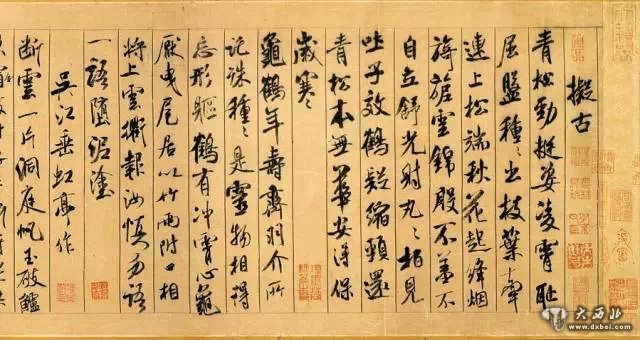 擬古
青松勁挺姿凌霄恥
屈盤種〻出枝葉牽
連上松端秋花起絳烟
旖旎雲錦殷不羞不
自立舒光射丸〻柏見
吐子效鶴疑縮頸還
青松本無華安得保
歲寒
龜鶴年壽齊羽介所
託殊種〻是靈物相得
忘形軀鶴有沖霄心龜
厭曳尾居以竹兩附口相
將上雲衢報汝慎勿語
一語墮泥塗
吳江垂虹亭作
斷雲一片洞庭帆玉破鱸
大西北
www.dxbei.com